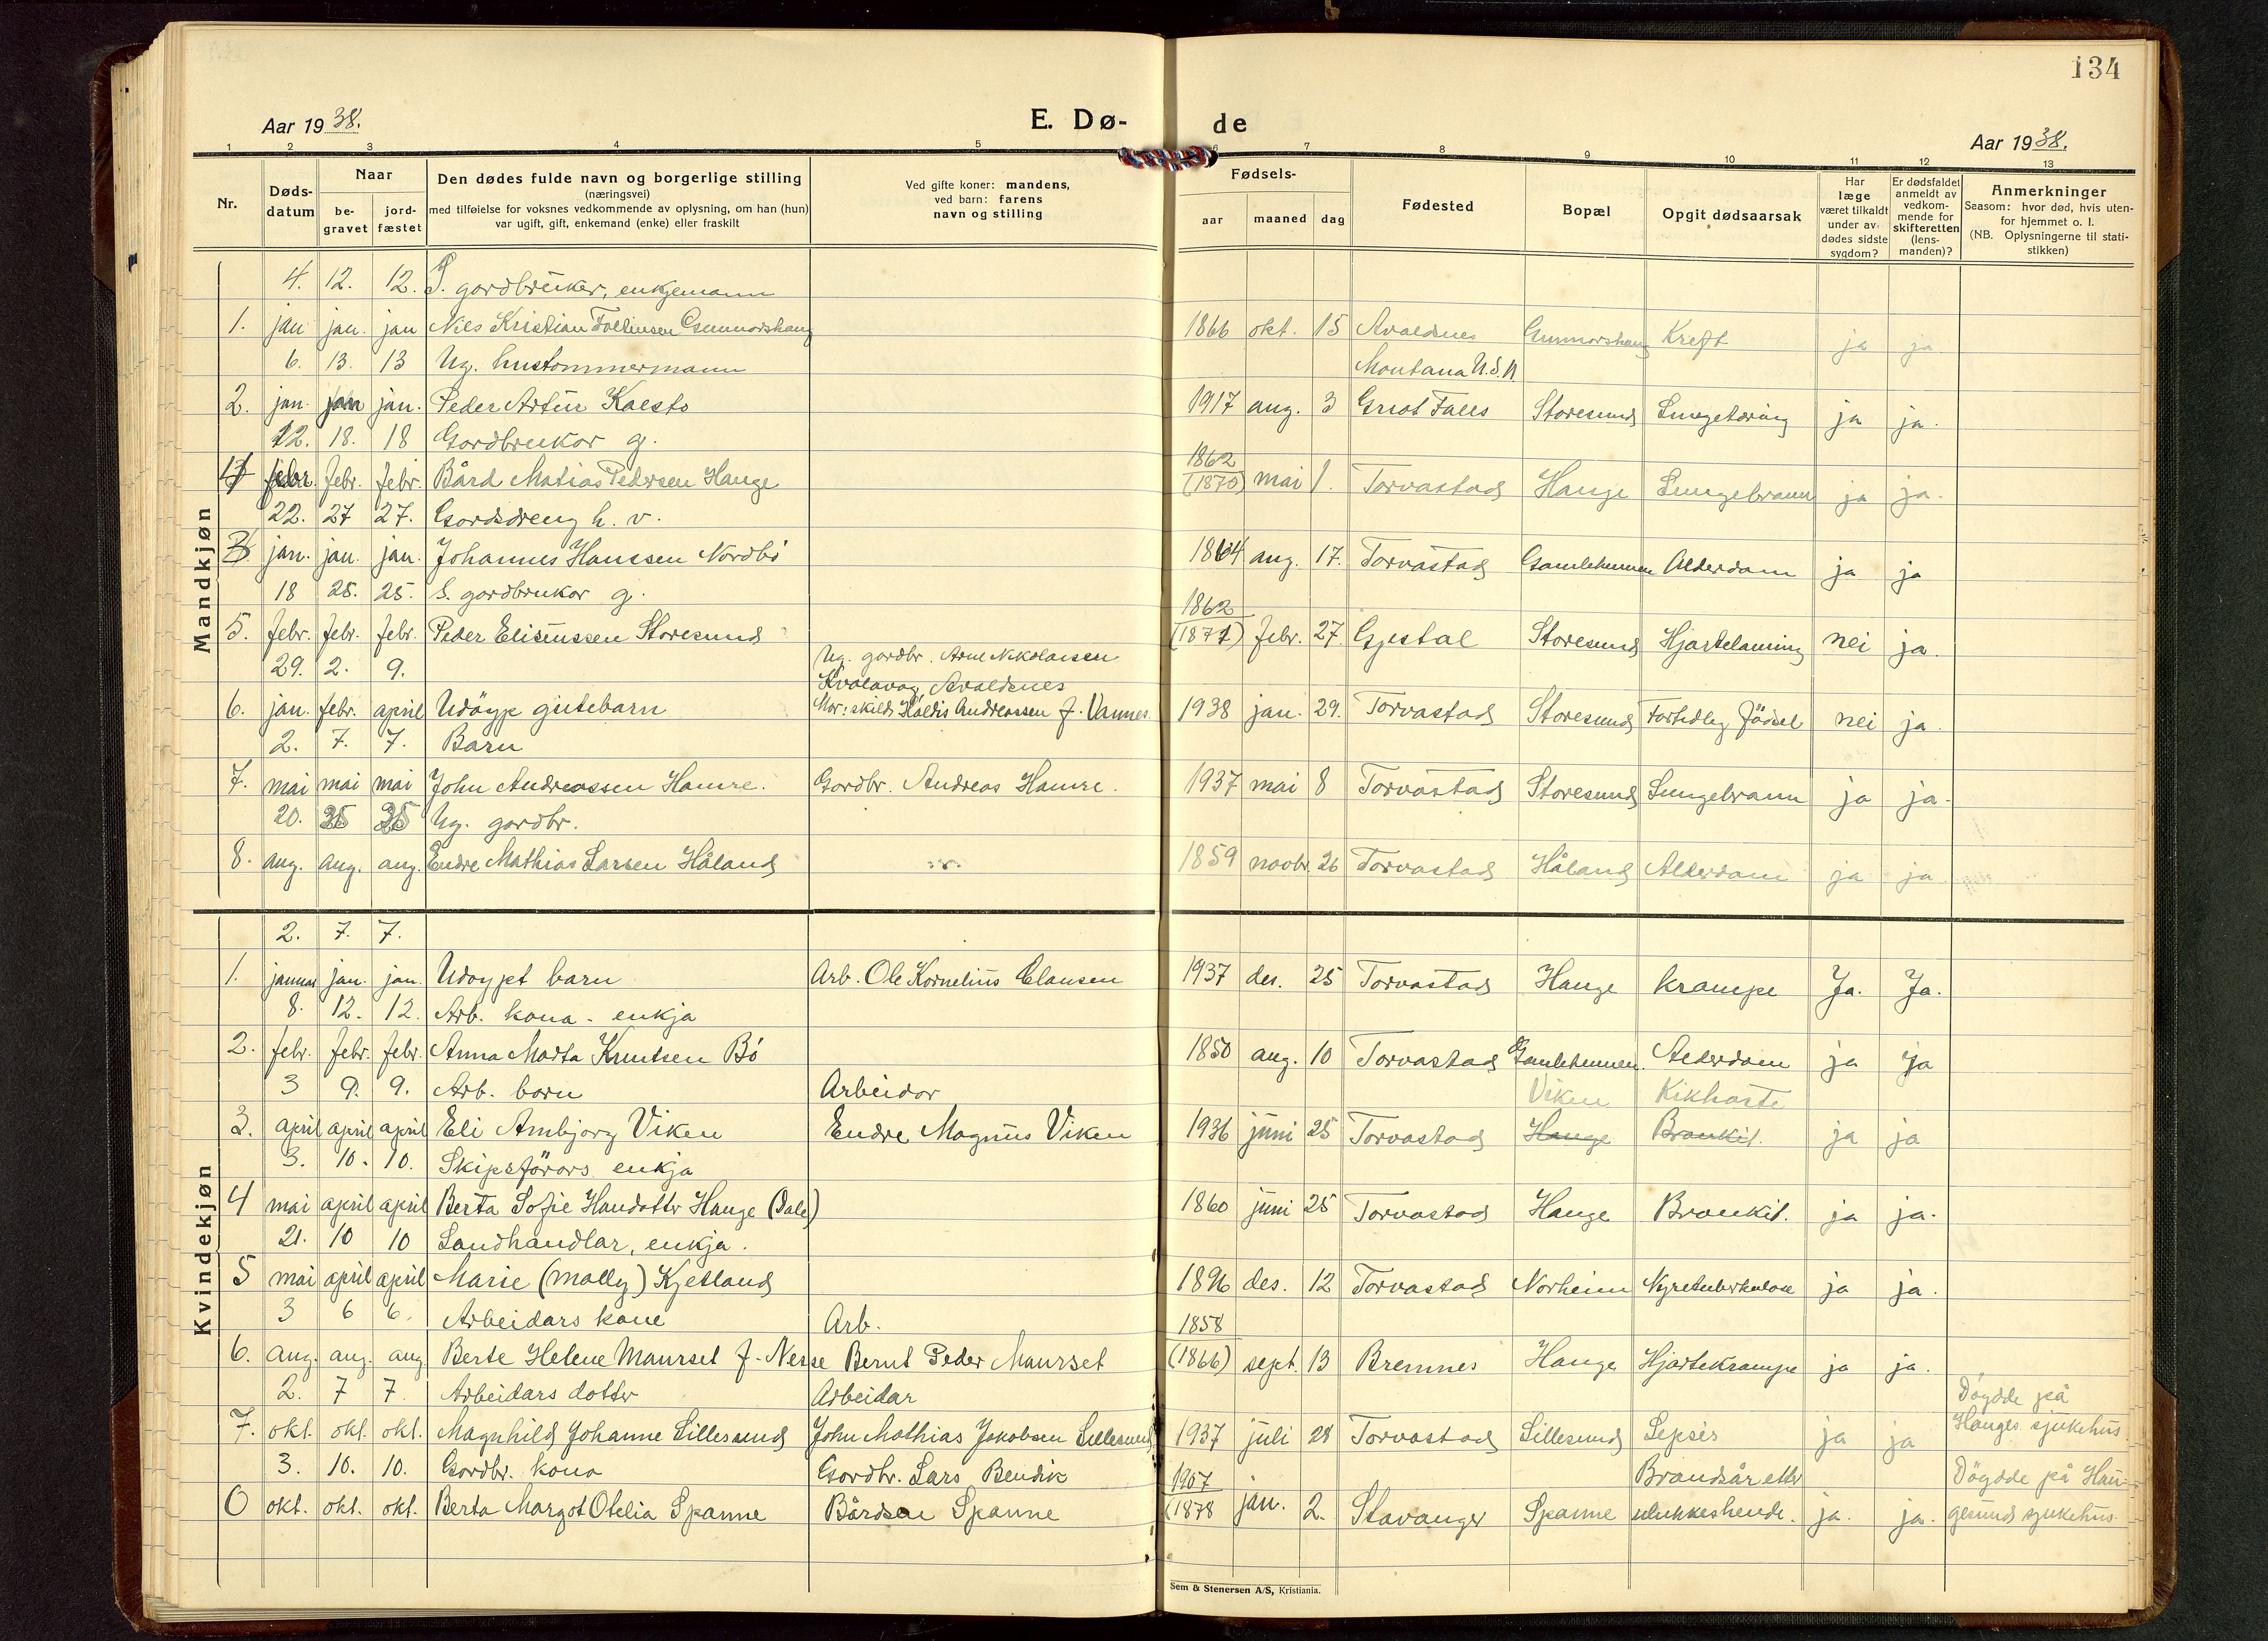 134
Aar 1938.
E. Dø-
de
Aar 1938.
1 2 3 4 5 6 7 8 9 10 11 12 13
Nr.
Døds-
datum
Naar
be-
gravet
jord-
fæstet
Den dødes fulde navn og borgerlige stilling
(næringsvei)
med tilføielse for voksnes vedkommende av oplysning, om han (hun)
var ugift, gift, enkemand (enke) eller fraskilt
Ved gifte koner: mandens,
ved barn: farens
navn og stilling
Fødsels-
aar maaned dag
Fødested
Bopæl
Opgit dødsaarsak
Har
læge
været tilkaldt
under av-
dødes sidste
sygdom?
Er dødsfaldet
anmeldt av
vedkom-
mende for
skifteretten
(lens-
manden)?
Anmerkninger
Saasom: hvor død, hvis uten-
for hjemmet o. l.
(NB. Oplysningerne til stati-
stikken)
Mandkjøn
4. 12. 12. gardbruker, enkjemann
1. jan jan. jan Nils Kristian Gunnarshaug 1866 okt. 15 Avaldsnes Gunnarshaug Kreft ja ja
6. 13. 13 Ug. hustømmermann Montana U.S.A.
2. jan. jan jan. Peder Artur Kalstø 1917 aug. 3 Great Falls Storesund Lungetæring ja ja.
12. 18. 18 Gardbrukar g. 1862
febr. febr. febr. Bård Matias Pedersen Hauge (1870) mai 1. Torvastad Hauge Lungebrann ja ja.
22. 27 27. Gardsdreng h. v.
3 jan. jan. jan. Johannes Hanssen Nordbö 1864 aug. 17. Torvastad Gamleheimen Alderdom ja ja
18 25. 25. S. gardbrukar g. 1862
5. febr. febr. febr. Peder Eliseussen Storesund (1871) febr. 27. Gjestal Storesund Hjartelaming nei ja.
29. 2. 9. Ug. gardbr. Arne Nikolaisen
Kvalavåg, Avaldsnes
6. jan. febr. april Udöypt gutebarn Mor: skild Haldis Andreassen f. Vannes. 1938 jan. 29. Torvastad Storesund Fortidleg födsel nei ja.
2. 7. 7. Barn
7. mai mai mai John Andreassen Hamre. Gardbr. Andreas Hamre. 1937 mai 8 Torvastad Storesund Lungebrann ja ja.
20. 25 25 Ug. gardbr.
8. aug. aug. aug. Endre Mathias Larsen Håland 1859 novbr. 26 Torvastad Håland Alderdom ja ja
Kvindekjøn
2. 7. 7.
1. januar jan. jan. Udøypt barn Arb. Ole Kornelius Clausen 1937 des. 25 Torvastad Hauge krampe Ja. Ja.
8. 12. 12. Arb. kona - enkja
2. febr. febr. febr. Anna Marta Knutsen Bö 1850 aug. 10 Torvastad Gamleheimen. Alderdom ja ja
3 9. 9. Arb. born Arbeidar Viken Kikhoste
3. april april april Eli Ambjorg Viken Endre Magnus Viken 1936 juni 25 Torvastad Hauge Bronkit. ja ja
3. 10. 10. Skipsförars enkja
4 mai april april Berta Sofie Hansdotter Hauge (Dale) 1860 juni 25 Torvastad Hauge Bronkit. ja ja.
21. 10 10 Landhandlar, enkja.
5 mai april april Marie (Molly) Kjetland 1896 des. 12 Torvastad Norheim Nyretuberkulose ja ja.
3 6 6. Arbeidars kone Arb. 1858
6. aug. aug. aug Berte Helene Maurset f. Nesse Bernt Peder Maurset (1866) sept. 13 Bremnes Hauge Hjartekrampe ja ja.
2. 7 7. Arbeidars dotter Arbeidar Döydde på
7. okt. okt. okt. Magnhild Johanne Lillesund John Mathias Jakobsen Lillesund 1937 juli 28 Torvastad Lillesund Sepsis ja ja Hauges. sjukehus
3. 10. 10. Gardbr. kona Gardbr. Lars Bendik 1907 Brandsår etter Döydde på Hau-
0 okt. okt. okt. Berta Margot Otelia Spanne Bårdsen Spanne (1878 jan. 2. Stavanger Spanne ulukkeshende. ja. ja. gesund sjukehus.
Sem & Stenersen A/S, Kristiania.